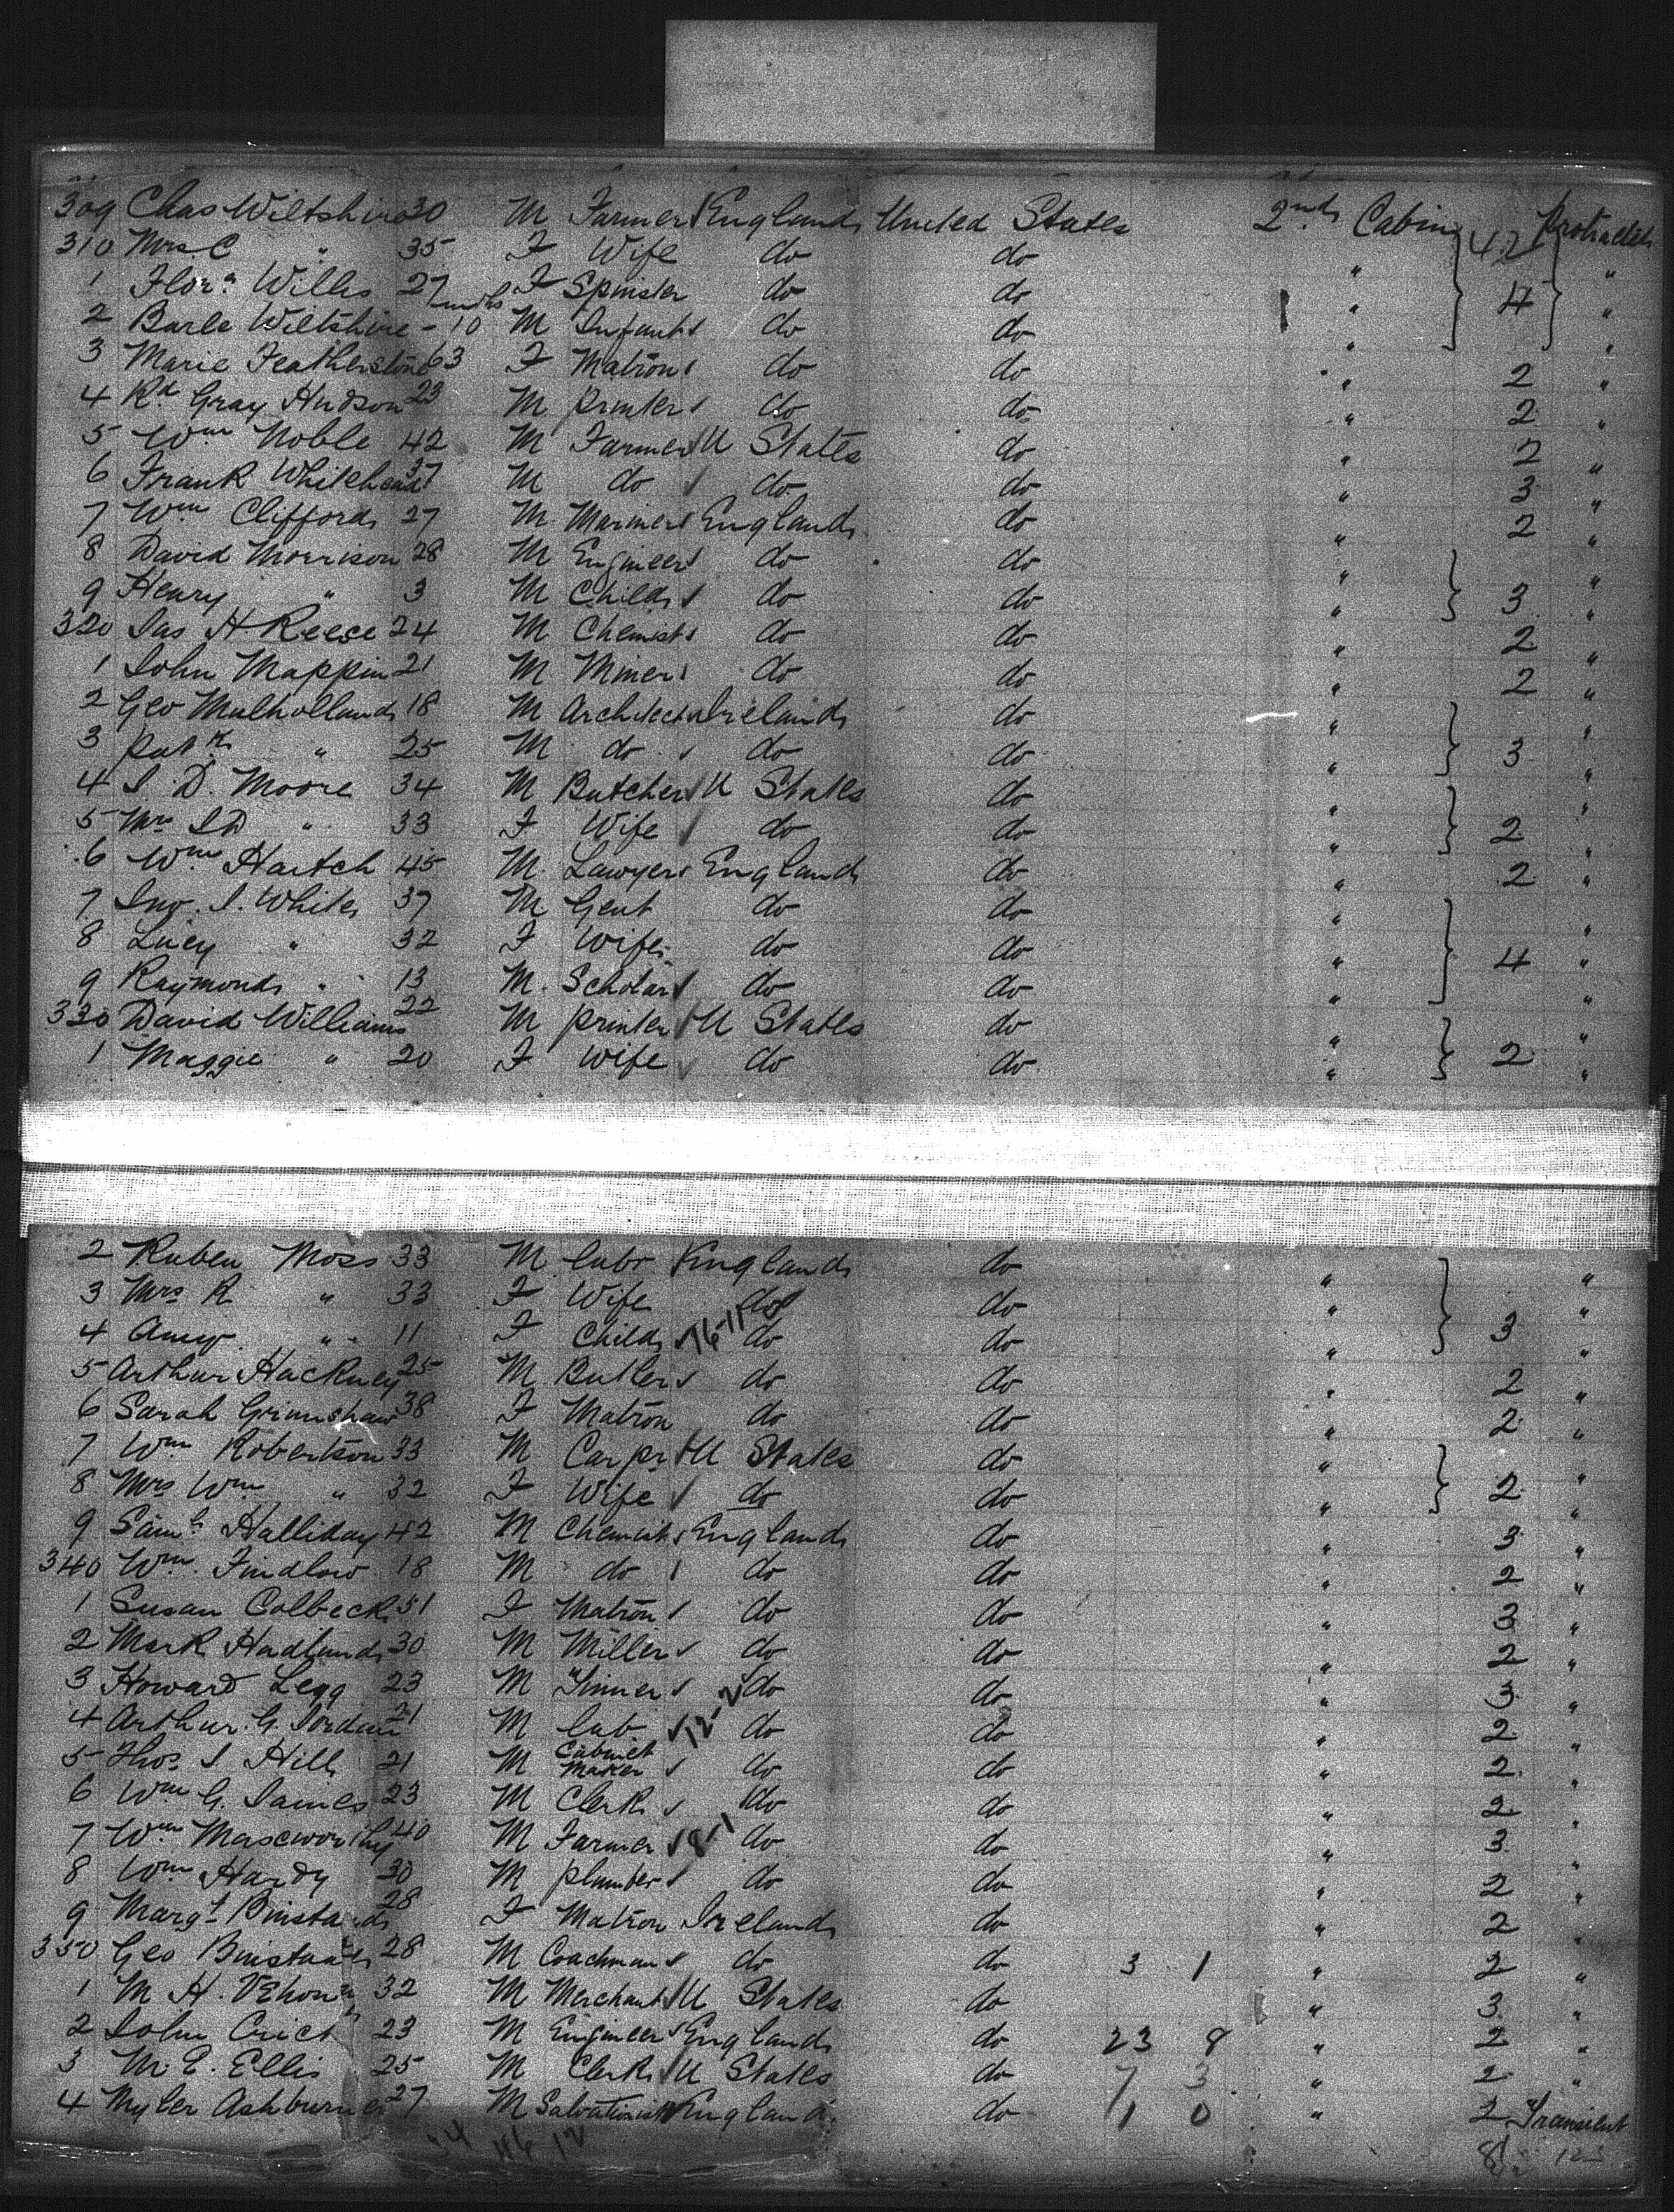 309 Chas Wiltshire 30 M Farmer England United States 2nd Cabin 42 Protracted
310 Mrs C " 35 F Wife do do " "
1 Flora Willis 27 F Spinster do do " 4 "
2 Wiltshire - 10 mths M Infant do do " "
3 Marie Featherstone 63 F Matron do do " 2 "
4 Rd Gray Hudson 23 M Printer do do " 2 "
5 Wm Noble 42 M Farmer U States do " 2 "
6 Frank Whitehead 37 M do do do " 3 "
7 Wm Clifford 27 M Mariner England do " 2 "
8 David Morrison 28 M Engineer do do " "
9 Henry " 3 M Child do do " 3 "
320 Jas H. Reese 24 M Chemist do do " 2 "
1 John Mappin 21 M Miner do do " 2 "
2 Geo Mulholland 18 M Architect Ireland do " "
3 Patk " 25 M do do do " 3 "
4 J. D. Moore 34 M Butcher U States do " "
5 Mrs J D " 33 F Wife do do " 2 "
6 Wm Hartch 45 M Lawyer England do " 2 "
7 Jno. J. White 37 M Gent do do " "
8 Lucy " 32 F Wife do do " 4 "
9 Raymond " 13 M Scholar do do " "
330 David Williams 22 M Printer U States do " "
1 Maggie " 20 F Wife do do " 2 "
2 Ruben Moss 33 M labr England do " "
3 Mrs R " 33 F Wife do do " "
4 Amy " 11 F Child do do " 3 "
5 Arthur Hackney 25 M Butler do do " 2 "
6 Sarah Grimshaw 38 F Matron do do " 2 "
7 Wm Robertson 33 M Carpr U States do " "
8 Mrs Wm " 32 F Wife do do " 2 "
9 Saml Halliday 42 M Chemist England do " 3 "
340 Wm Findlow 18 M do do do " 2 "
1 Susan Colbeck 51 F Matron do do " 3 "
2 Mark Hadland 30 M Miller do do " 2 "
3 Howard Legg 23 M Tinner do do " 3 "
4 Arthur G. Jordan 21 M lab do do " 2 "
5 Thos J Hill 21 M Cabinet Maker do do " 2 "
6 Wm G. James 23 M Clerk do do " 2 "
7 Wm Maseworthy 40 M Farmer 8-1 do do " 3 "
8 Wm Hardy 30 M Plumber do do " 2 "
9 Margt Binstead 28 F Matron Ireland do " 2 "
350 Geo Binstead 28 M Coachman do do 3 1 " 2 "
1 M H. 32 M Merchant U States do " 3 "
2 John 23 M Engineer England do 23 8 " 2 "
3 M. E. Ellis 25 M Clerk U States do 7 3 " 2 "
4 Myler Ashburner 27 M Salvationist England do 1 0 " 2 Transient